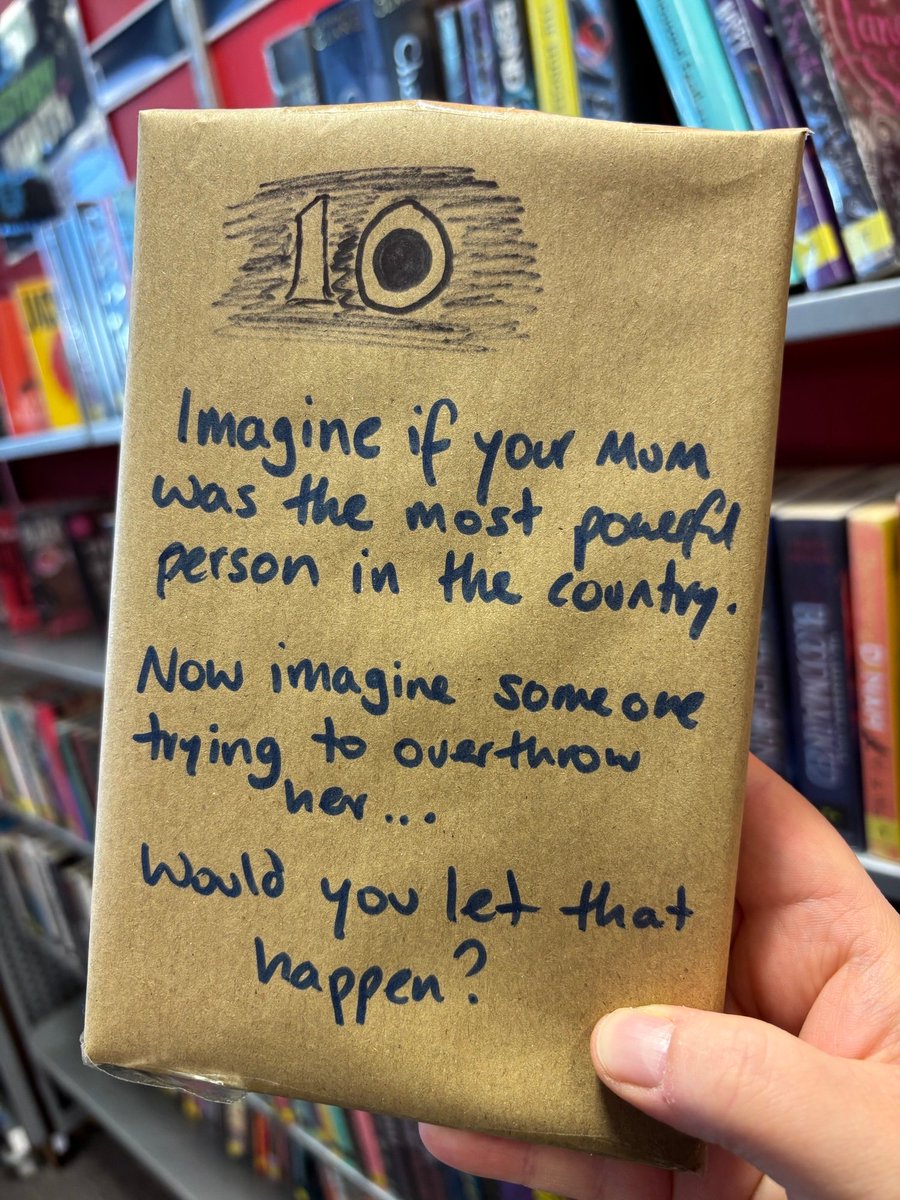 10
Imagine if your Mum
was the most powerful
person in the country.
Now imagine someone
trying to overthrow
her...
Would you let that
happen?